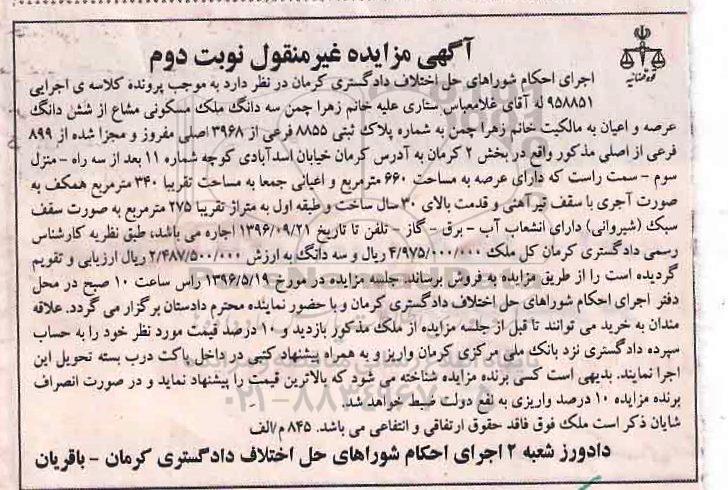 آگهی مزایده غیرمنقول نوبت دوم
قوه قضائیه
اجرای احکام شوراهای حل اختلاف دادگستری کرمان در نظر دارد به موجب پرونده کلاسه ی اجرایی
۹۵۸۸۵۱ له آقای غلامعباس ستاری علیه خانم زهرا چمن سه دانگ ملک مسکونی مشاع از شش دانگ
عرصه و اعیان به مالکیت خانم زهرا چمن به شماره پلاک ثبتی ۸۸۵۵ فرعی از ۳۹۶۸ اصلی مفروز و مجزا شده از ۸۹۹
فرعی از اصلی مذکور واقع در بخش ۲ کرمان به آدرس کرمان خیابان اسدآبادی کوچه شماره ۱۱ بعد از سه راه - منزل
سوم - سمت راست که دارای عرصه به مساحت ۶۶۰ مترمربع و اعیانی جمعا به مساحت تقریبا ۳۴۰ مترمربع همکف به
صورت آجری با سقف تیرآهنی و قدمت بالای ۳۰ سال ساخت و طبقه اول به متراژ تقریبا ۲۷۵ مترمربع به صورت سقف
سبک (شیروانی) دارای انشعاب آب - برق - گاز - تلفن تا تاریخ ۱۳۹۶/۰۹/۲۱ اجاره می باشد، طبق نظریه کارشناس
رسمی دادگستری کرمان کل ملک ۴/۹۷۵/۰۰۰/۰۰۰ ریال و سه دانگ به ارزش ۲/۴۸۷/۵۰۰/۰۰۰ ریال ارزیابی و تقویم
گردیده است را از طریق مزایده به فروش برساند. جلسه مزایده در مورخ ۱۳۹۶/۵/۱۹ راس ساعت ۱۰ صبح در محل
دفتر اجرای احکام شوراهای حل اختلاف دادگستری کرمان و با حضور نماینده محترم دادستان برگزار می گردد. علاقه
مندان به خرید می توانند تا قبل از جلسه مزایده از ملک مذکور بازدید و ۱۰ درصد قیمت مورد نظر خود را به حساب
سپرده دادگستری نزد بانک ملی مرکزی کرمان واریز و به همراه پیشنهاد کتبی در داخل پاکت درب بسته تحویل این
اجرا نمایند. بدیهی است کسی برنده مزایده شناخته می شود که بالاترین قیمت را پیشنهاد نماید و در صورت انصراف
برنده مزایده ۱۰ درصد واریزی به نفع دولت ضبط خواهد شد.
شایان ذکر است ملک فوق فاقد حقوق ارتفاقی و انتفاعی می باشد. ۸۴۵ م/الف
دادورز شعبه ۲ اجرای احکام شوراهای حل اختلاف دادگستری کرمان - باقریان